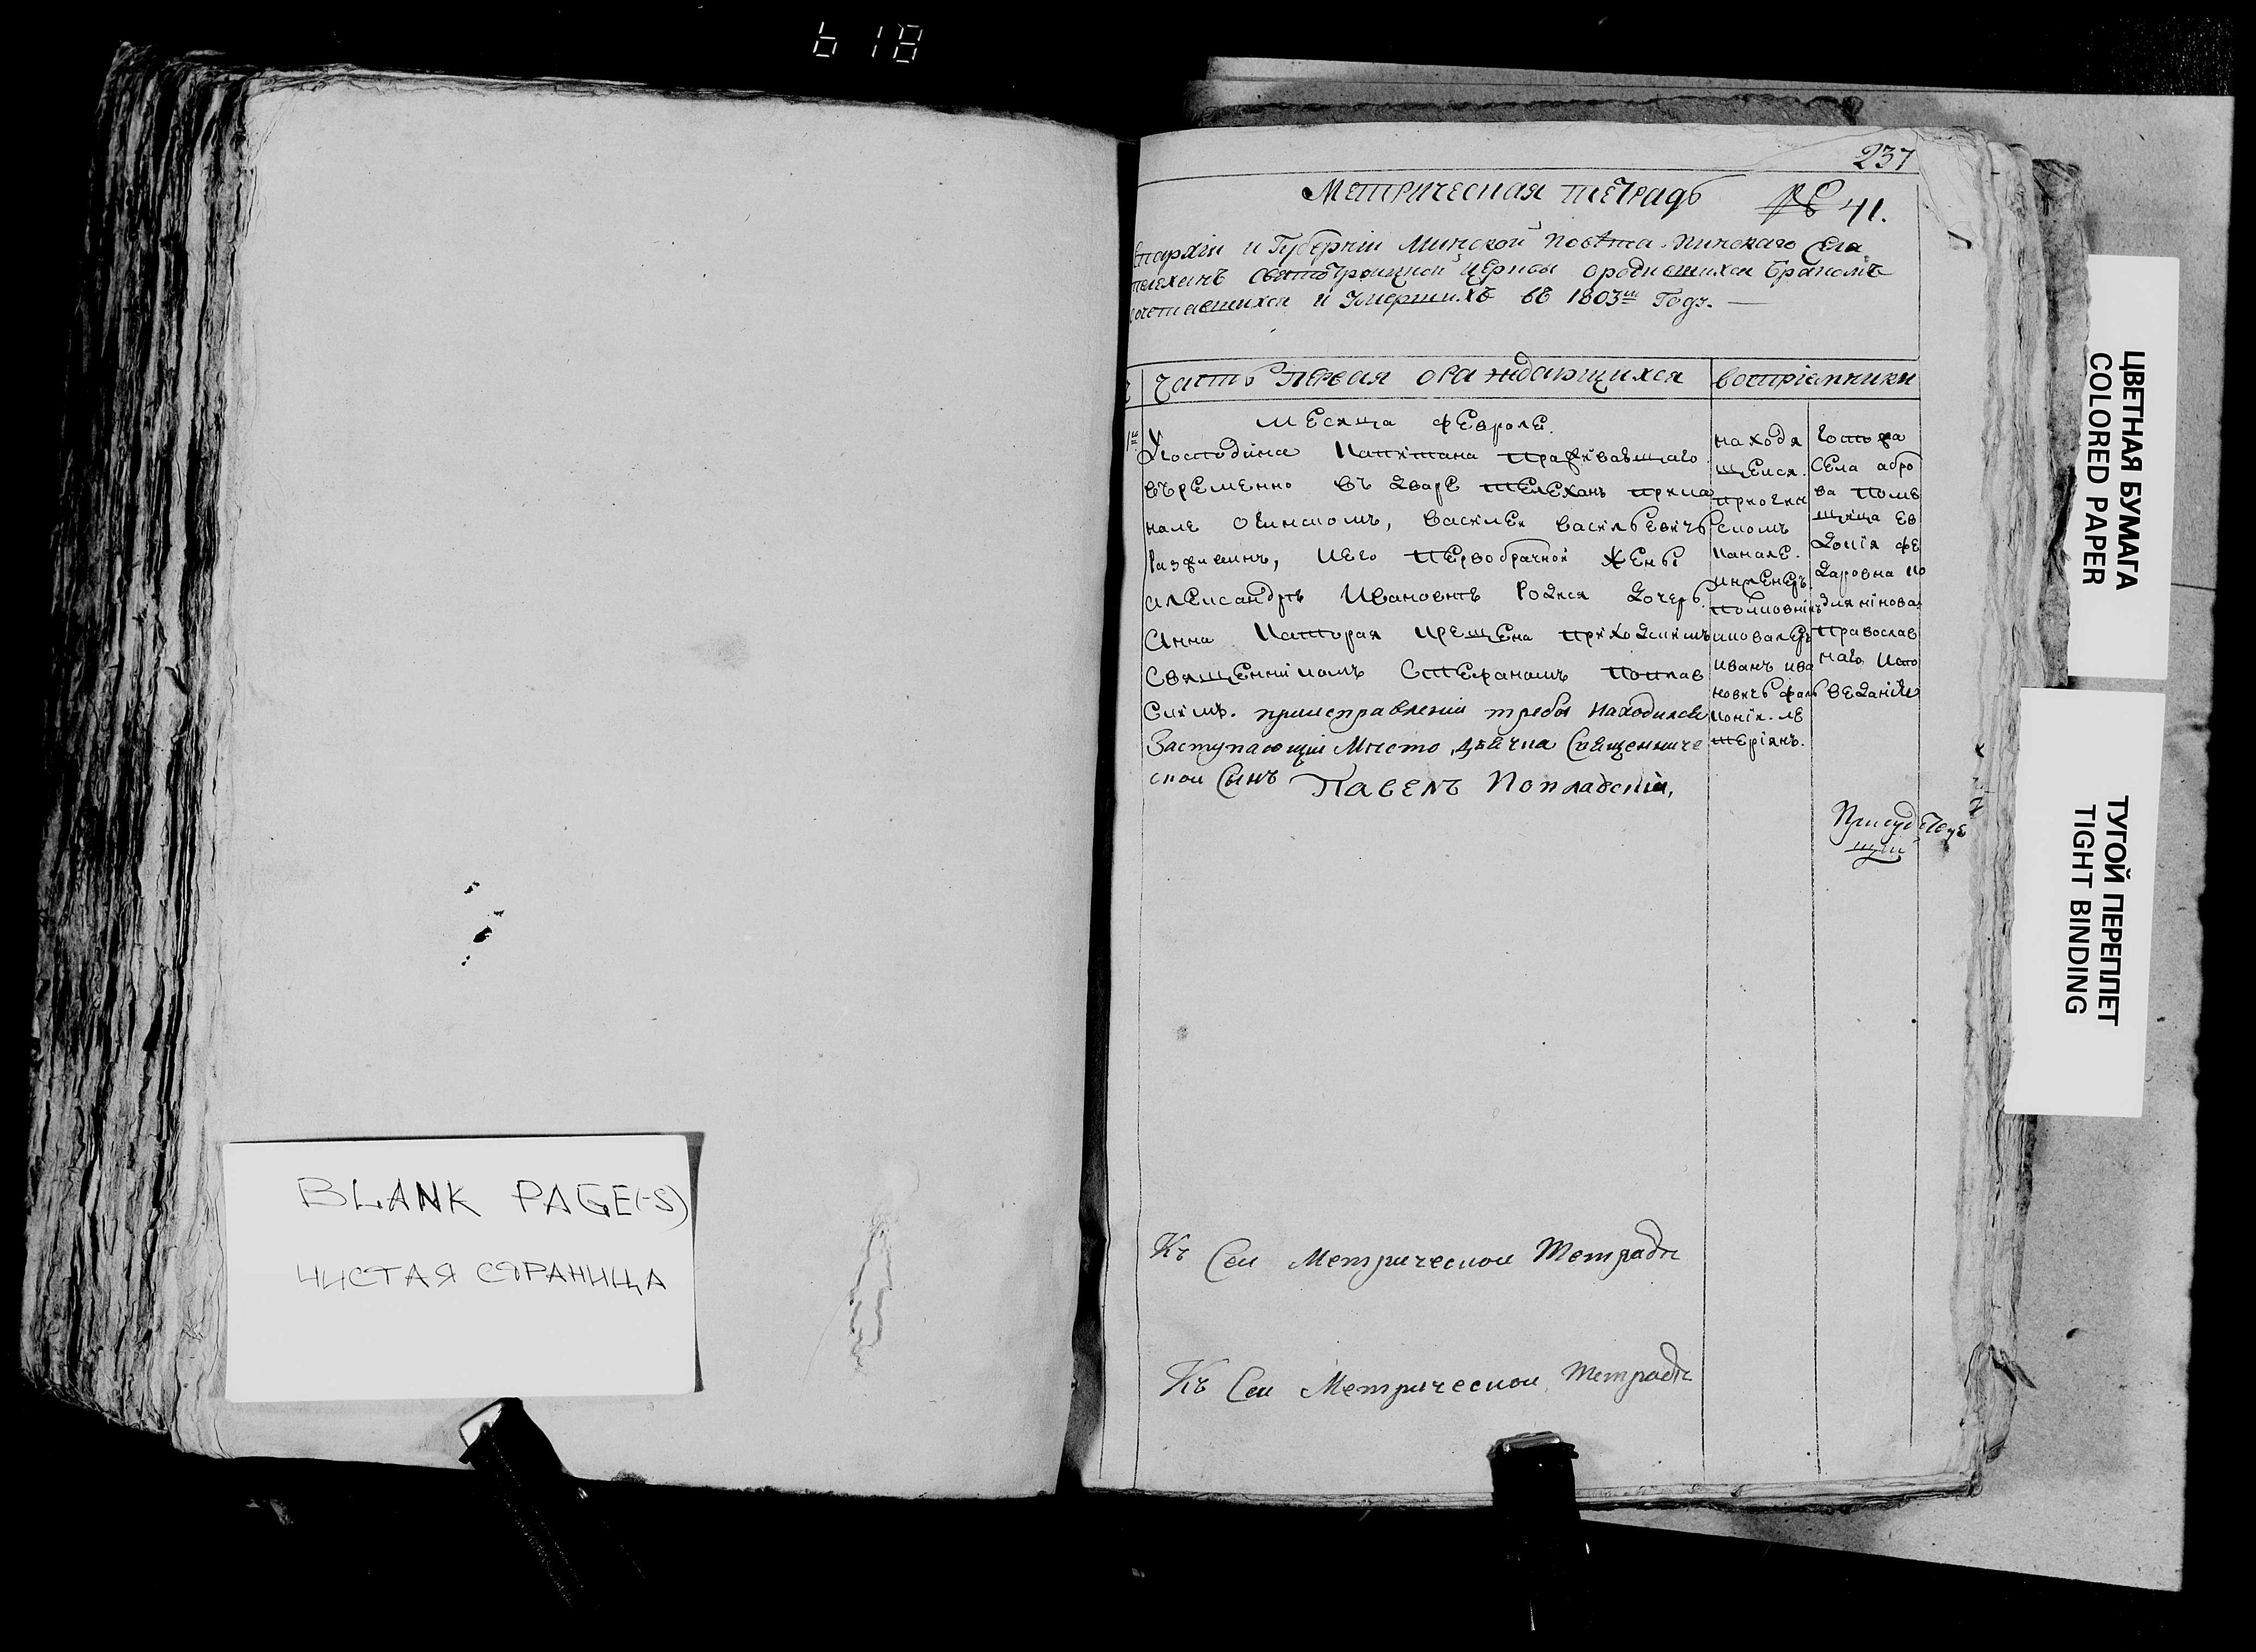 618
BLANK PAGE(-S)
ЧИСТАЯ СТРАНИЦА
237
Метрическая тетрадь № 41.
Епархіи и Губерніи Минской повѣта Пинскаго Села
телеханъ святотроицкой церкви ородившихся бракомъ
сочетавшихся и Умершихъ въ 1803м Годꙋ.
Часть первая ораждающихся
воспріемники
Месяца Февраля.
1е
Господина Капитана Праживавшаго
въременно въ Дваре Телехань прика
нале Огинскомъ, Василея Васильевичь
, иего Первобрачной Жены
Александръ Ивановнъ Родися Дочерь
Анна Каторая Крещена приходскимъ
Священникомъ Стефаномъ Поплав
скимъ. приисправленіи требы находился
Заступающій Мѣсто Дьячка Священниче
ской Сынъ Павелъ Поплавскій,
находя
щейся
приогин
скомъ
канале.
инженеръ
полковникъ
икавалеръ
иванъ ива
новичь фаль
коник. ле
теріянъ.
Госпожа
Села абро
ва поме
щица Ев
докія Фе
даровна по
длянінова
Православ
наго Испо
веданія
Къ Сеи Метрической Тетрадѣ
Къ Сеи Метрической Тетрадѣ
ЦВЕТНАЯ БУМАГА
COLORED PAPER
ТУГОЙ ПЕРЕПЛЕТ
TIGHT BINDING